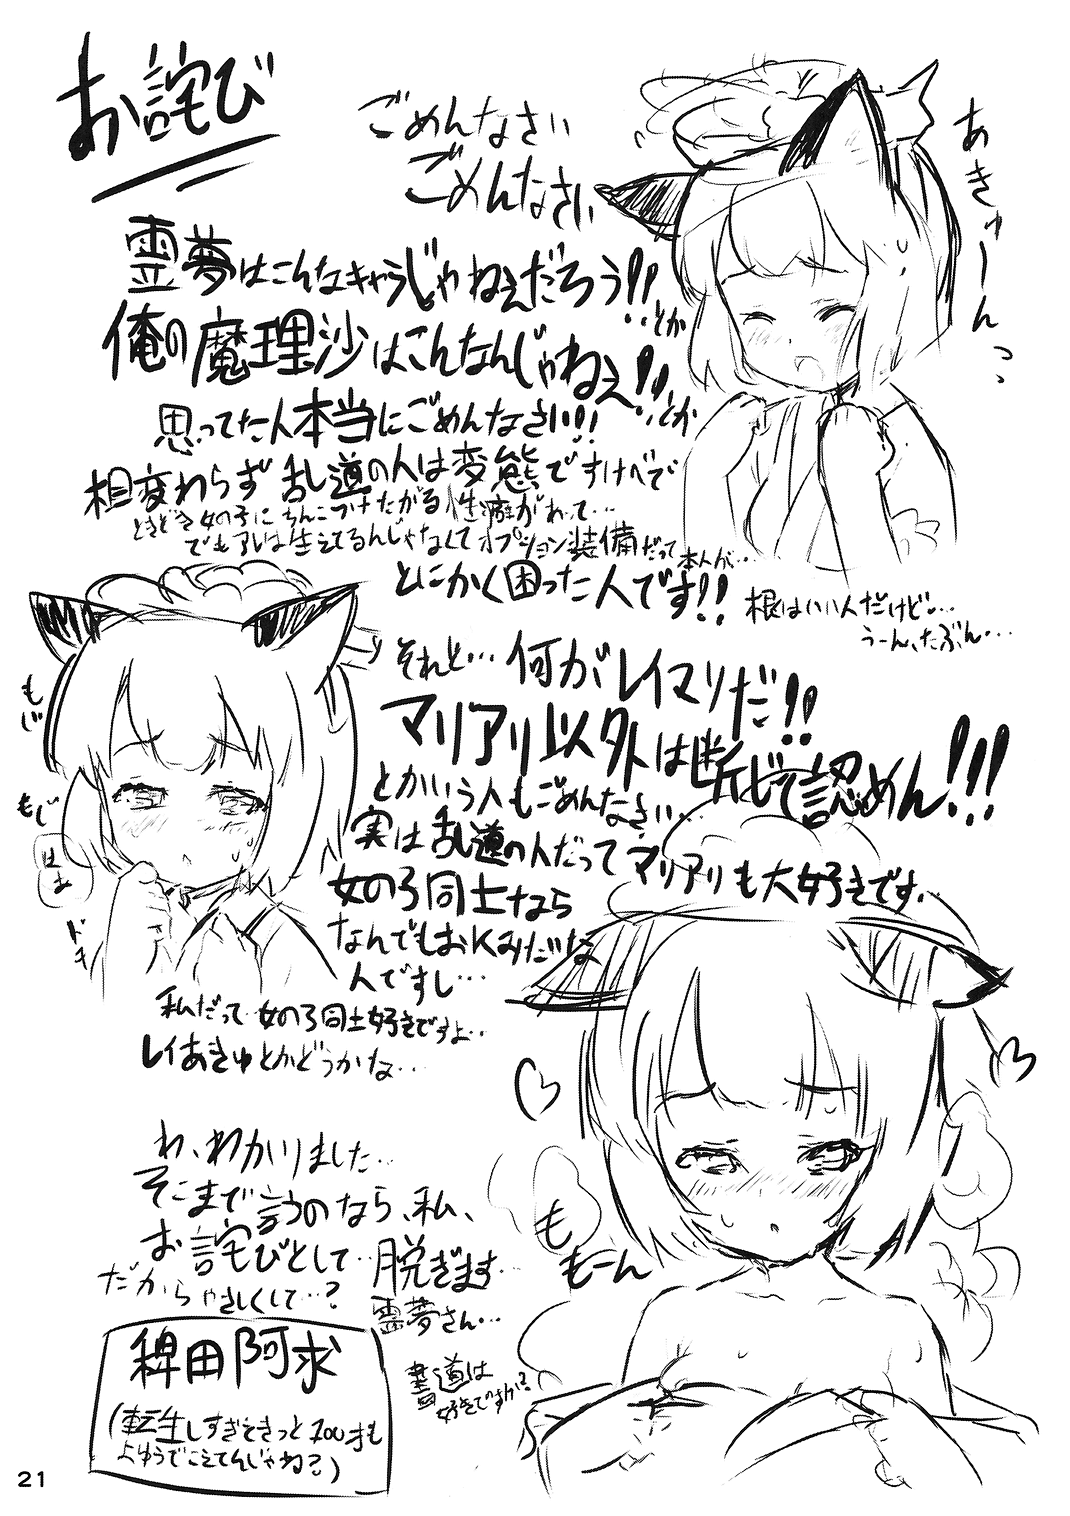 お詫び
ごめんなさい
ごめんなさい
あきゅーんっ
霊夢はこんなキャラじゃねぇだろう!!とか
俺の魔理沙はこんなんじゃねぇ!!とか
思ってた人本当にごめんなさい!!
相変わらず乱道の人は変態ですけべで
ときどき女の子にちんこつけたがる性癖があって…
でもアレは生えてるんじゃなくてオプション装備だって本人が…
とにかく困った人です!!
根はいい人だけど…
うーん、たぶん…
それと…何がレイマリだ!!
マリアリ以外は断じて認めん!!!
とかいう人もごめんなさい…
実は乱道の人だってマリアリも大好きです。
女の子同士なら
なんでもおKみたいな
人ですし…
私だって女の子同士好きですよ…
レイあきゅとかどうかな…
もじ
もじ
はぁ
ドキ
わ、わかりました…
そこまで言うのなら、私、
お詫びとして…脱ぎます…
だからやさしくして…?
霊夢さん…
書道は
好きですか?
もももーん
稗田阿求
(転生しすぎできっと200才も
よゆうでこえてんじゃね?)
21